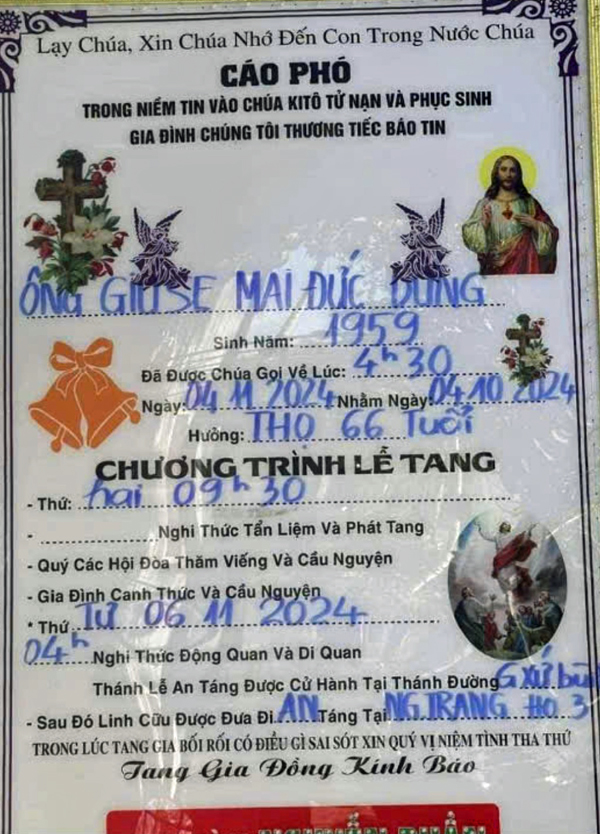 Lạy Chúa, Xin Chúa Nhớ Đến Con Trong Nước Chúa
CÁO PHÓ
TRONG NIỀM TIN VÀO CHÚA KITÔ TỬ NẠN VÀ PHỤC SINH
GIA ĐÌNH CHÚNG TÔI THƯƠNG TIẾC BÁO TIN
ÔNG GIUSE MAI ĐỨC DŨNG
Sinh Năm: 1959
Đã Được Chúa Gọi Về Lúc: 4h30
Ngày: 04 11 2024 Nhằm Ngày: 04 10 2024
Hưởng: THỌ 66 Tuổi
CHƯƠNG TRÌNH LỄ TANG
- Thứ: hai 09h30
- Nghi Thức Tẩn Liệm Và Phát Tang
- Quý Các Hội Đòa Thăm Viếng Và Cầu Nguyện
- Gia Đình Canh Thức Và Cầu Nguyện
* Thứ Tư 06 11 2024
04h Nghi Thức Động Quan Và Di Quan
Thánh Lễ An Táng Được Cử Hành Tại Thánh Đường G Xứ
- Sau Đó Linh Cữu Được Đưa Đi AN Táng Tại NG TRANG HO 3
TRONG LÚC TANG GIA BỐI RỐI CÓ ĐIỀU GÌ SAI SÓT XIN QUÝ VỊ NIỆM TÌNH THA THỨ
Tang Gia Đồng Kính Báo